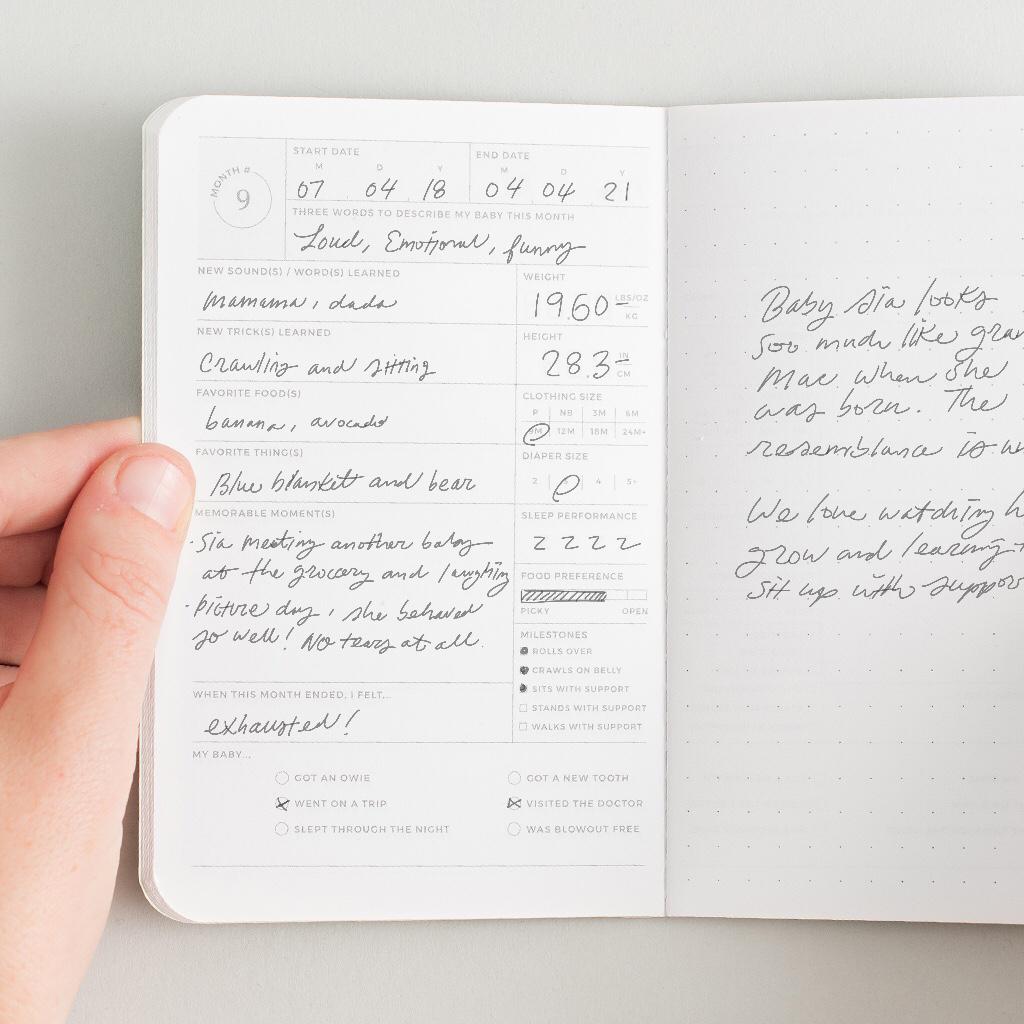 MONTH #
9
START DATE
M D Y
07 04 18
END DATE
M D Y
04 04 21
THREE WORDS TO DESCRIBE MY BABY THIS MONTH
Loud, Emotional, funny
NEW SOUND(S) / WORD(S) LEARNED
mamama, dada
NEW TRICK(S) LEARNED
Crawling and sitting
FAVORITE FOOD(S)
banana, avocado
FAVORITE THING(S)
Blue blankett and bear
MEMORABLE MOMENT(S)
·Sia meeting another baby
at the grocery and laughing
·picture day, she behaved
so well! No tears at all.
WHEN THIS MONTH ENDED, I FELT...
exhausted!
WEIGHT
19.60 LBS/OZ
KG
HEIGHT
28.3 IN
CM
CLOTHING SIZE
P NB 3M 6M
9M 12M 18M 24M+
DIAPER SIZE
2 4 5+
SLEEP PERFORMANCE
Z Z Z Z
FOOD PREFERENCE
PICKY OPEN
MILESTONES
ROLLS OVER
CRAWLS ON BELLY
SITS WITH SUPPORT
STANDS WITH SUPPORT
WALKS WITH SUPPORT
MY BABY...
GOT AN OWIE
WENT ON A TRIP
SLEPT THROUGH THE NIGHT
GOT A NEW TOOTH
VISITED THE DOCTOR
WAS BLOWOUT FREE
Baby Sia looks
soo much like
Mac when she
was born. The
resemblance is
We love watching
grow and learning
sit up with